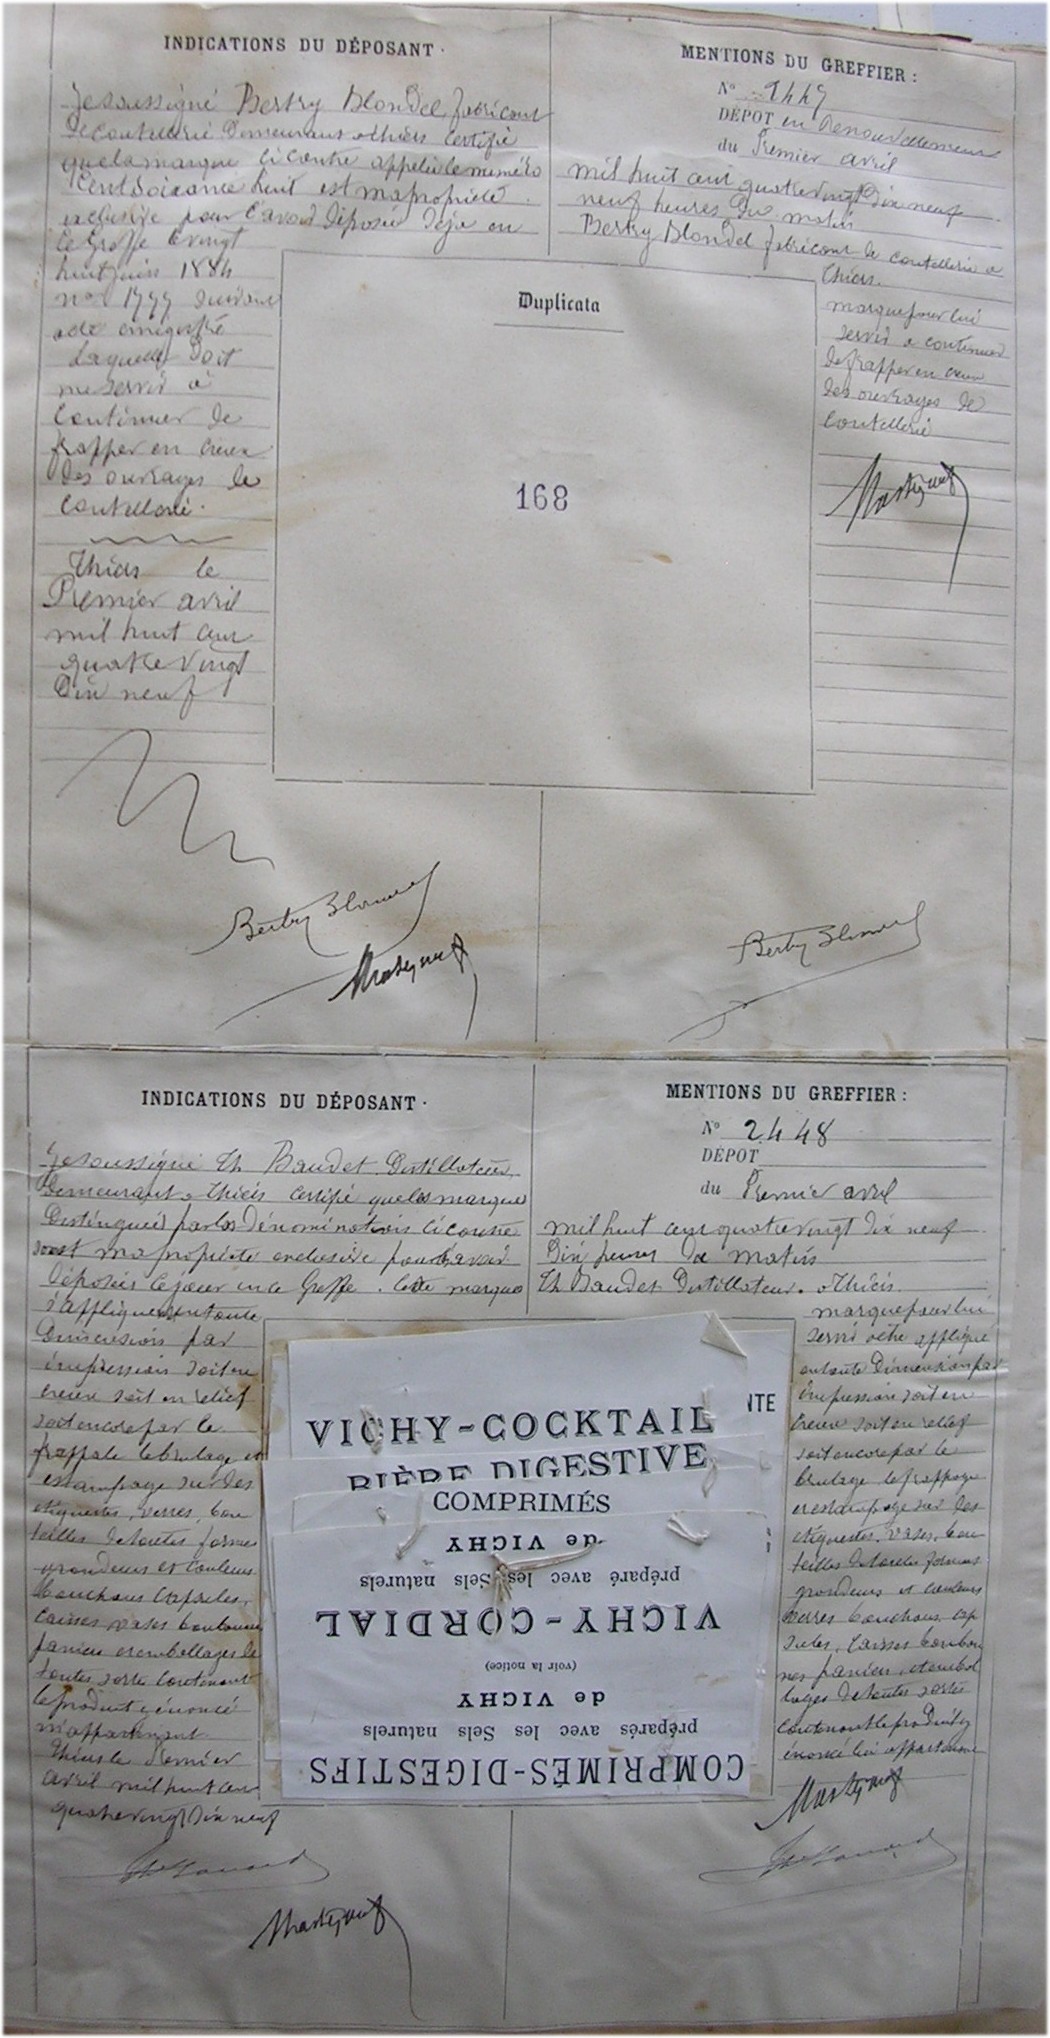 INDICATIONS DU DÉPOSANT.
Je soussigné Bertry Blondel fabricant
de coutellerie demeurant a thiers certifie
que la marque ci contre appelée le numéro
Cent Soixante huit est ma propriété
exclusive pour l'avoir déposée déja en
ce Greffe le vingt
huit juin 1884
no 1777 suivant
acte enregistré
Laquelle doit
me servir a
continuer de
frapper en creux
des ouvrages de
coutellerie.
Thiers le
Premier avril
mil huit cent
quatre vingt
dix neuf
Bertry Blondel
MENTIONS DU GREFFIER :
No 2447
DÉPÔT en Renouvellement
du Premier avril
mil huit cent quatre vingt dix neuf
neuf heures du matin
Bertry Blondel fabricant de coutellerie a
thiers.
marque pour lui
servir a continuer
de frapper en creux
des ouvrages de
coutellerie
Bertry Blondel
Duplicata
168
INDICATIONS DU DÉPOSANT.
Je soussigné Th Baudet Distillateur
Demeurant a thiers certifie que les marques
Distinguées par les dénominations ci contre
sont ma propriété exclusive pour les avoir
déposées ce jour en ce Greffe. Cette marque
s'applique en toute
Dimension par
impression soit en
creux soit en relief
soit encore par le
frappage le brulage et
estampage sur des
etiquettes, verres, bou
teilles de toutes formes
grandeurs et couleurs
bouchons capsules,
caisses vases bonbonnes
paniers et emballages de
toutes sortes contenant
le produit énoncé
m'appartenant
Thiers le Premier
avril mil huit cent
quatre vingt dix neuf
MENTIONS DU GREFFIER :
No 2448
DÉPÔT
du Premier avril
mil huit cent quatre vingt dix neuf
Dix heures du matin
Th Baudet Distillateur a thiers
marque pour lui
servir a être appliqué
en toute Dimension par
impression soit en
creux soit en relief
soit encore par le
brulage le frappage
et estampage sur des
etiquettes, vases, bou
teilles de toutes formes
grandeurs et couleurs
verres bouchons cap
sules, caisses bonbon
nes paniers, et embal
lages de toutes sortes
contenant le produit
énoncé lui appartenant
NTE
VICHY-COCKTAIL
BIÈRE DIGESTIVE
COMPRIMÉS
de VICHY
préparé avec les Sels naturels
VICHY-CORDIAL
(voir la notice)
de VICHY
préparés avec les Sels naturels
COMPRIMÉS-DIGESTIFS